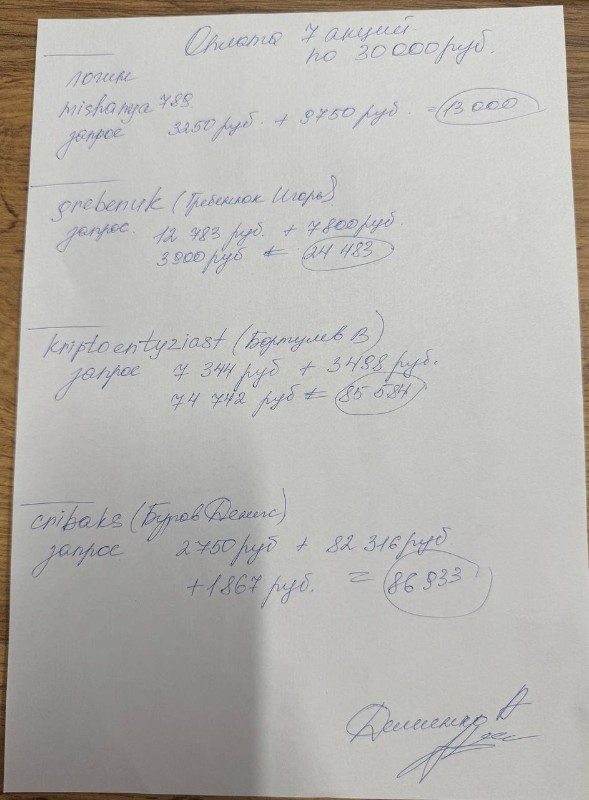 Оплата 7 акций
по 30000 руб.
логин
mishanya 789
запрос 3250 руб. + 9750 руб. = 13 000
grebenuk (Гребенюк Игорь)
запрос. 12 783 руб. + 7800 руб
3900 руб = 24 483
kriptoentyziast (Бортулев В)
запрос 7 344 руб + 3498 руб.
74 742 руб = 85 584
cnibaks (Буров Денис)
запрос 2750 руб + 82 316 руб
+ 1 867 руб. = 86 933